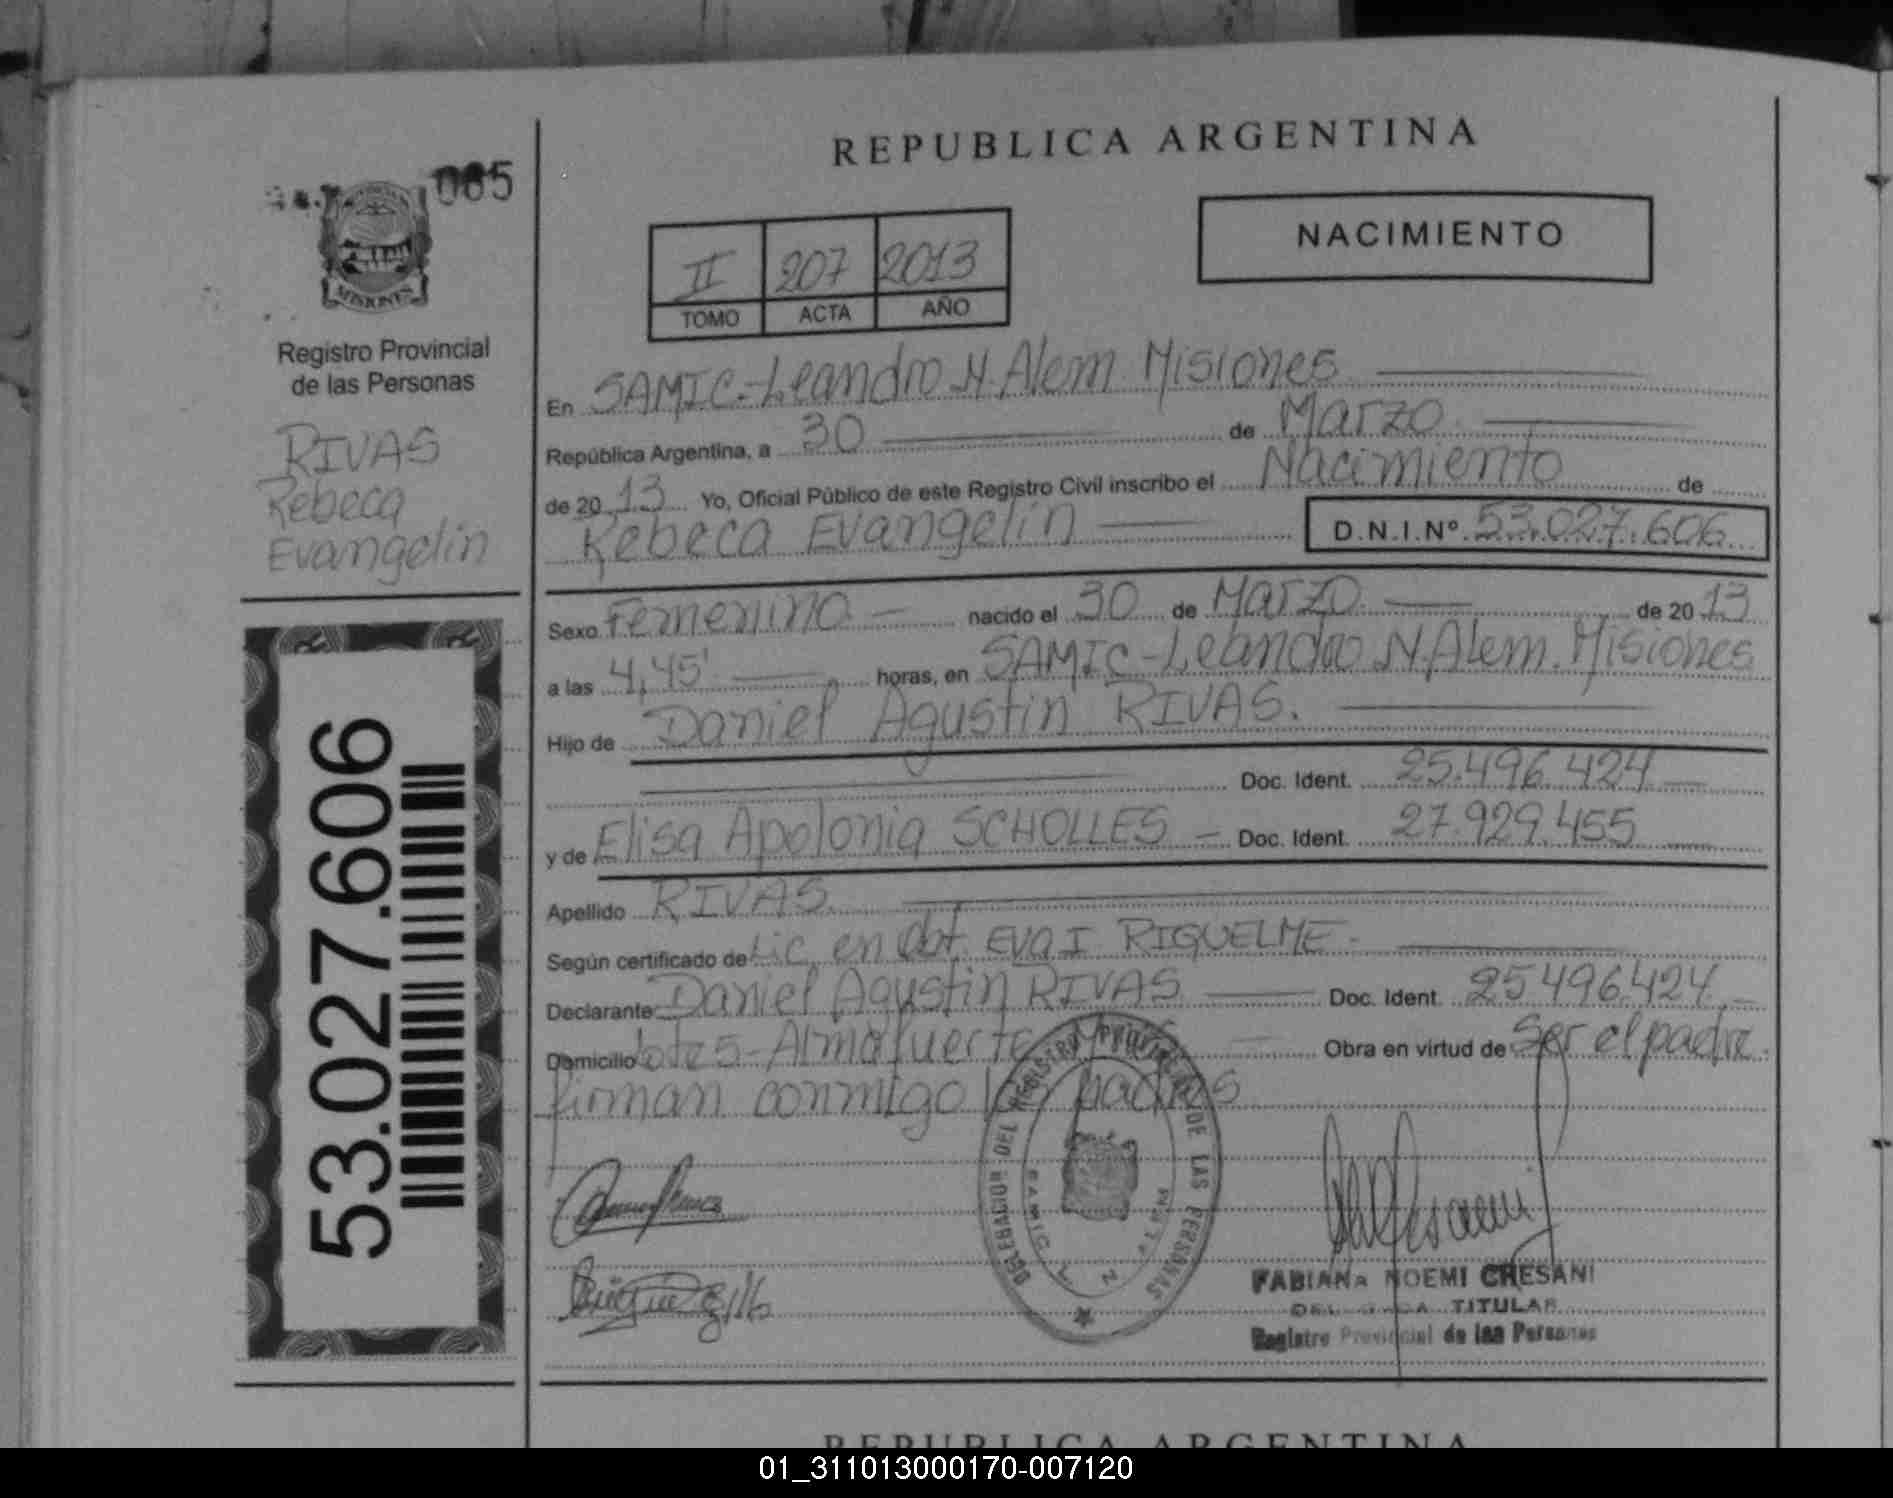 REPUBLICA ARGENTINA
085
MISIONES
Registro Provincial
de las Personas
RIVAS
Rebeca
Evangelin
53.027.606
NACIMIENTO
II 207 2013
TOMO ACTA AÑO
En SAMIC-Leandro N. Alem. Misiones
República Argentina, a 30 de Marzo
de 2013 Yo, Oficial Público de este Registro Civil inscribo el Nacimiento de
Rebeca Evangelin D.N.I.Nº 53.027.606
Sexo Femenino nacido el 30 de Marzo de 2013
a las 4,45' horas, en SAMIC-Leandro N. Alem. Misiones
Hijo de Daniel Agustin RIVAS.
Doc. Ident. 25.496.424
y de Elisa Apolonia SCHOLLES Doc. Ident. 27.929.455
Apellido RIVAS
Según certificado de Lic. en Obt. Eva I RIQUELME
Declarante Daniel Agustin RIVAS Doc. Ident 25.496.424
Domicilio Lote 5-Almafuerte Obra en virtud de Ser el padre.
firman conmigo los padres
DELEGACION DEL REGISTRO PROVINCIAL DE LAS PERSONAS
SAMIC L N ALEM
FABIANA NOEMI CRESANI
DELEGADA TITULAR
Registro Provincial de las Personas
REPUBLICA ARGENTINA
01_311013000170-007120